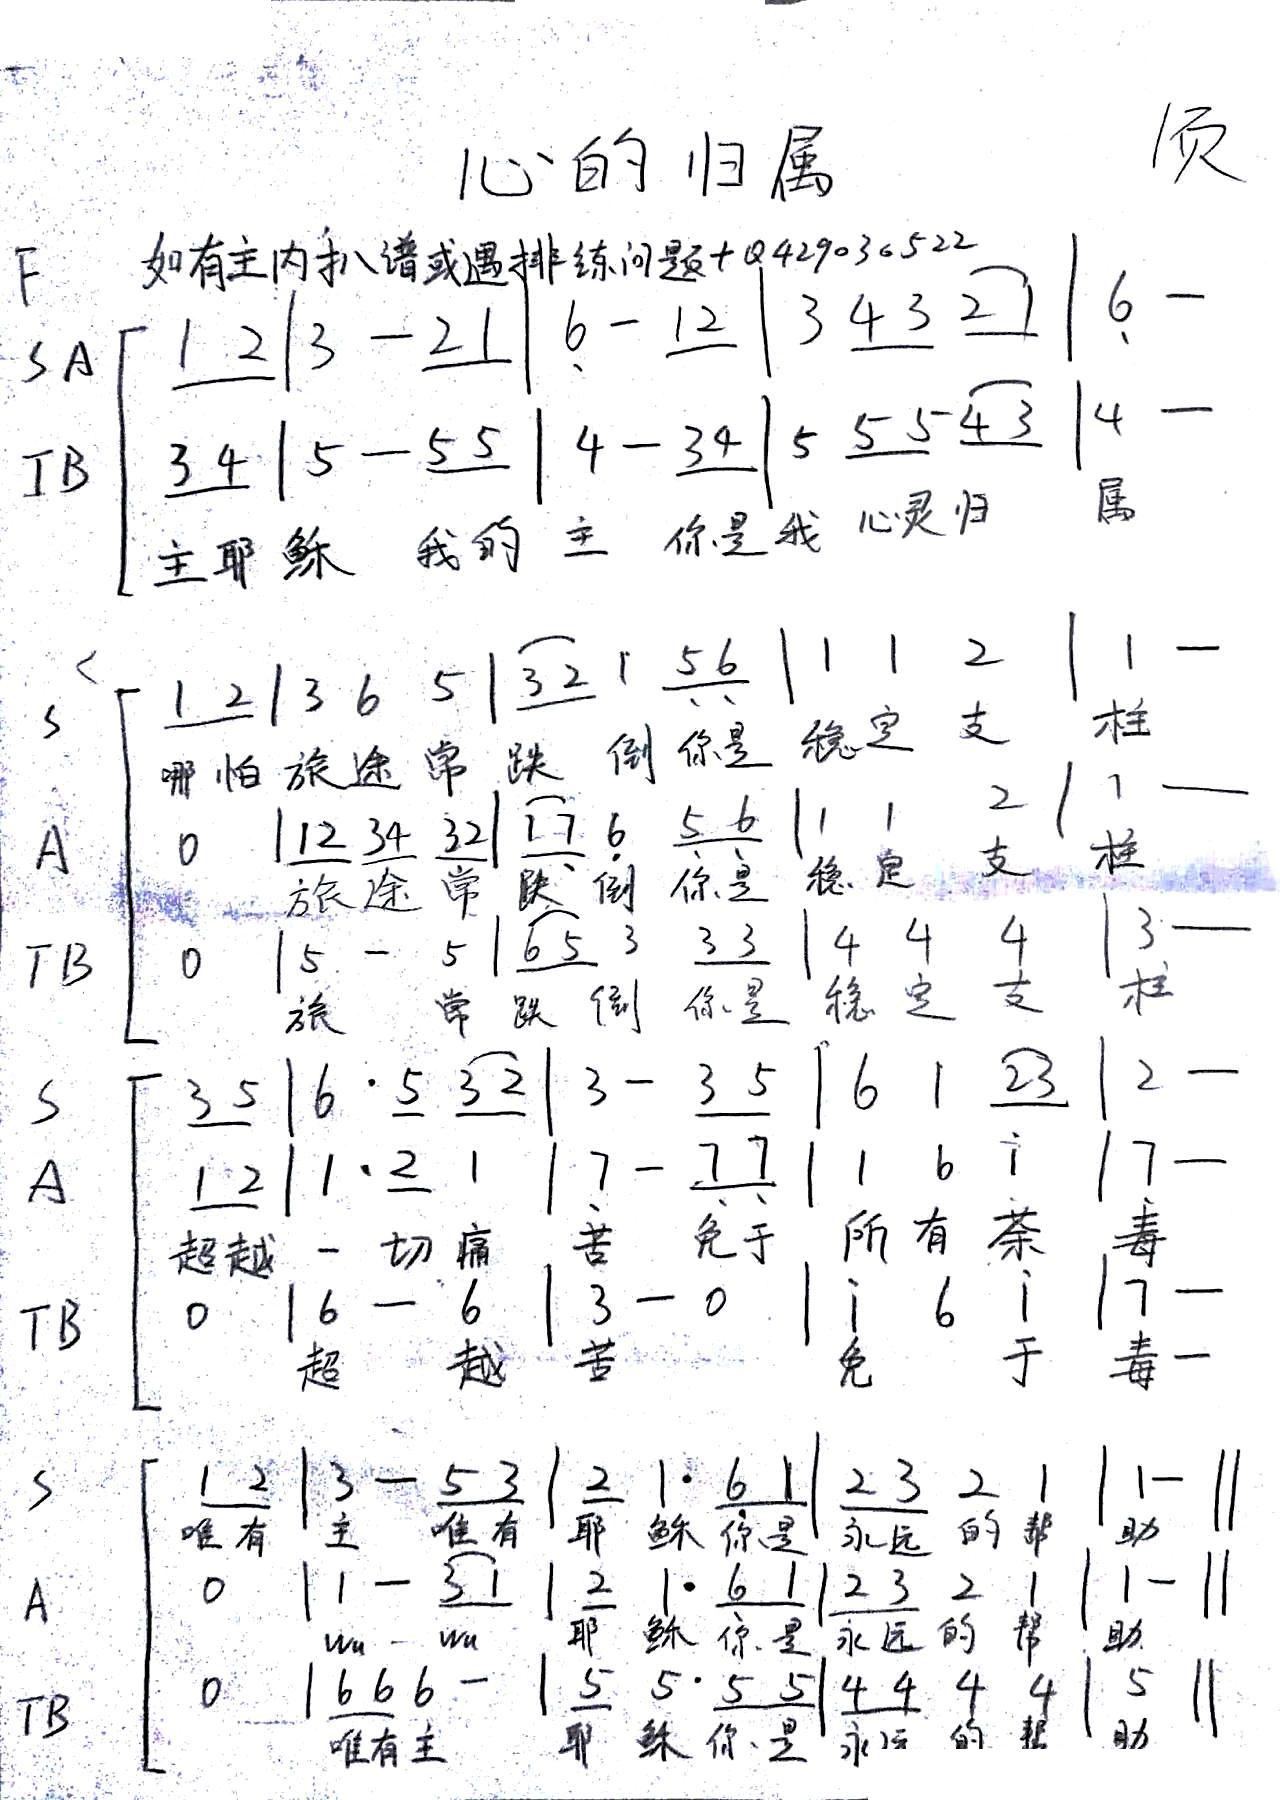 心的归属
1页
F 如有主内扒谱或遇排练问题+Q429036522
SA 1 2 | 3 — 2 1 | 6̣ — 1 2 | 3 4 3 2 1 | 6̣ —
TB 3 4 | 5 — 5 5 | 4 — 3 4 | 5 5 5 4 3 | 4 —
主耶稣 我的主 你是我 心灵归 属
S 1 2 | 3 6 5 | 3 2 1 5̣ 6̣ | 1 1 2 | 1 —
哪怕旅途常跌倒 你是 稳定 支 柱
A 0 | 1 2 3 4 3 2 | 1 7̣ 6̣ 5̣ 6̣ | 1 1 2 | 1 —
旅途常跌倒 你是 稳定 支 柱
TB 0 | 5 — 5 | 6 5 3 3 3 | 4 4 4 | 3 —
旅 常 跌 倒 你是 稳定 支 柱
S 3 5 | 6 · 5 3 2 | 3 — 3 5 | 6 1 2 3 | 2 —
A 1 2 | 1 · 2 1 | 7̣ — 7̣ 7̣ | 1 6 i | 7 —
超越 一 切 痛 苦 免于 所有 荼 毒
TB 0 | 6 — 6 | 3 — 0 | i 6 i | 7 —
超 越 苦 免 于 毒 —
S 1 2 | 3 — 5 3 | 2 1 · 6̣ 1 | 2 3 2 1 | 1 — ‖
唯有 主 唯有 耶 稣 你是 永远 的 帮 助
A 0 | 1 — 3 1 | 2 1 · 6 1 | 2 3 2 1 | 1 — ‖
wu - wu 耶 稣 你是 永远 的 帮 助
TB 0 | 6 6 6 — | 5 5 · 5 5 | 4 4 4 4 | 5 ‖
唯有主 耶 稣 你是 永远 的 帮 助